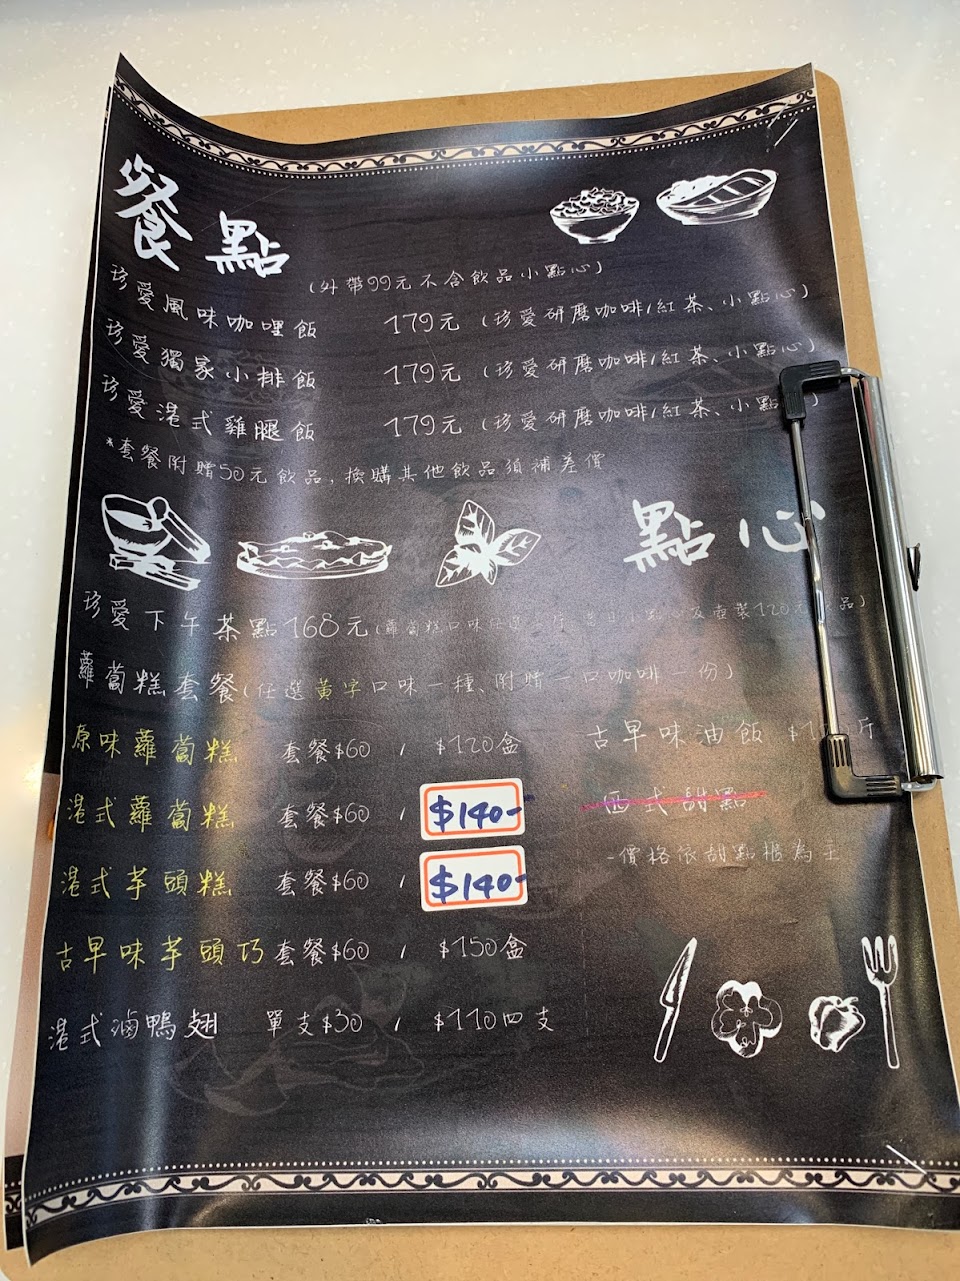 餐點
(外帶99元不含飲品小點心)
珍愛風味咖哩飯 179元 (珍愛研磨咖啡/紅茶、小點心)
珍愛獨家小排飯 179元 (珍愛研磨咖啡/紅茶、小點心)
珍愛港式雞腿飯 179元 (珍愛研磨咖啡/紅茶、小點心)
*套餐附贈50元飲品,換購其他飲品須補差價
點心
珍愛下午茶點168元(蘿蔔糕口味任選一
蘿蔔糕套餐(任選黃字口味一種、附贈一口咖啡一份)
原味蘿蔔糕 套餐$60 / $120盒
古早味油飯
港式蘿蔔糕 套餐$60 / $140-
西式甜點
港式芋頭糕 套餐$60 / $140-
-價格依甜點櫃為主
古早味芋頭巧 套餐$60 / $150盒
港式滷鴨翅 單支$30 / $110四支